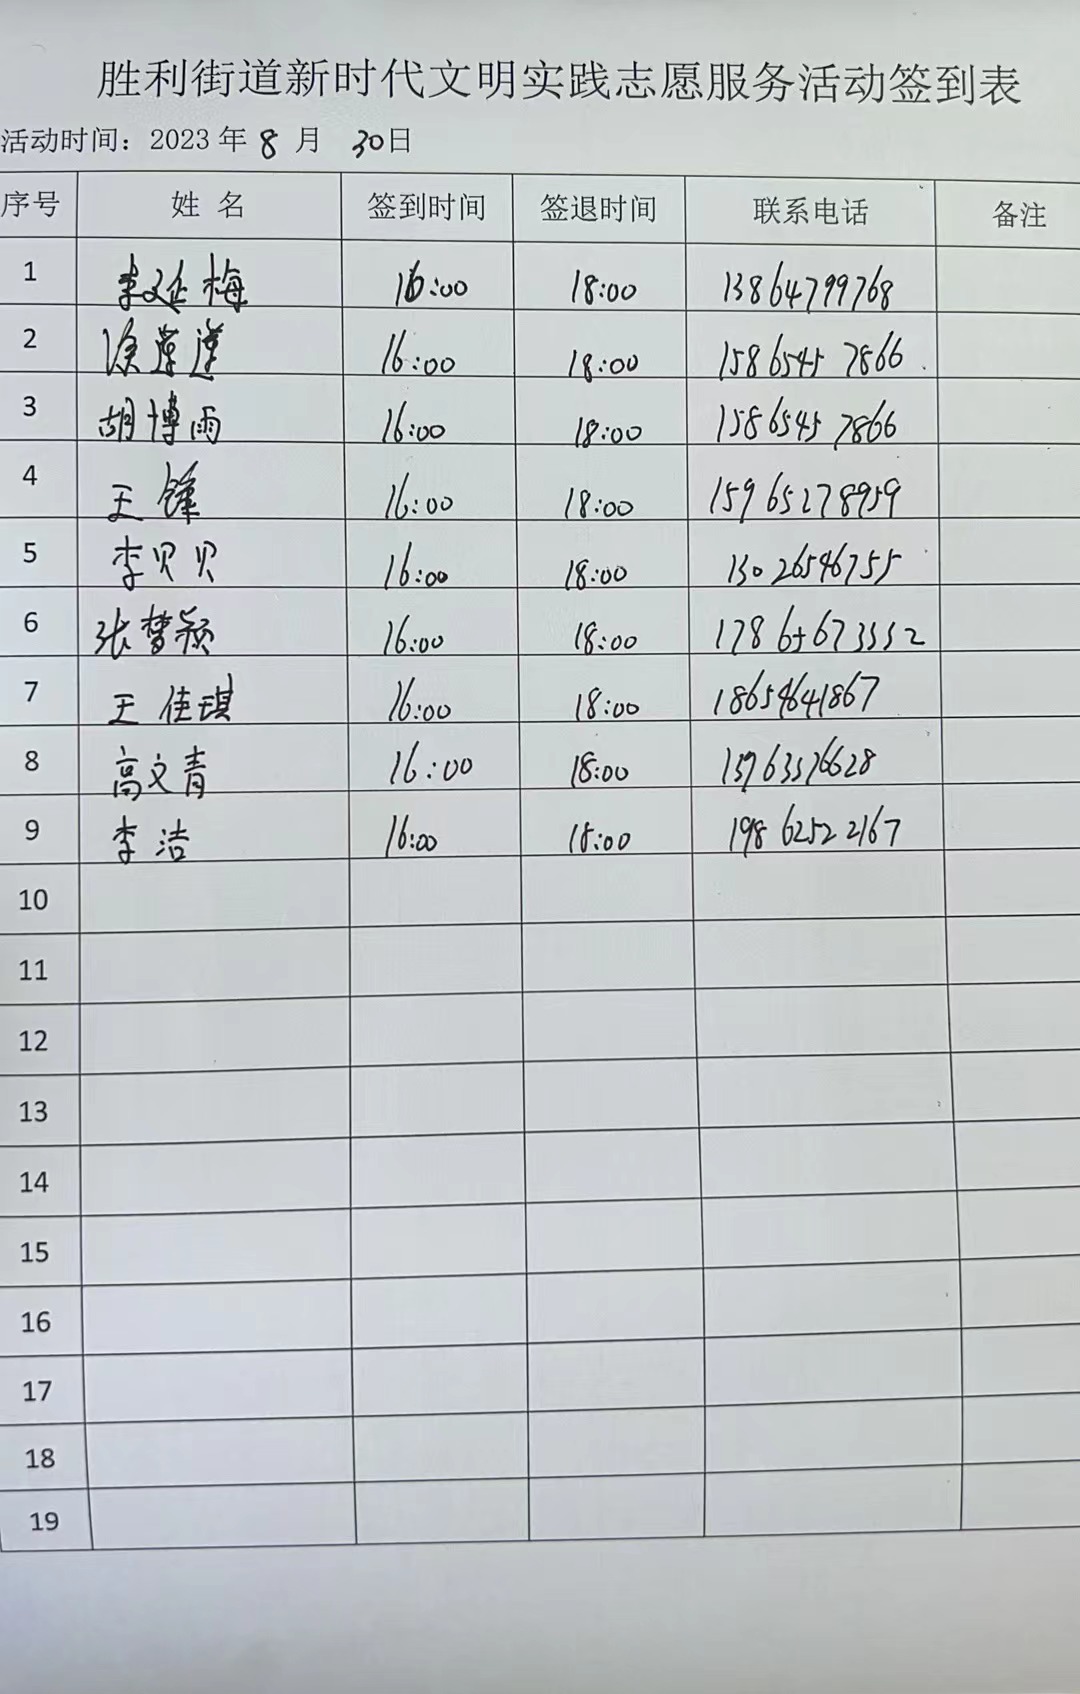 胜利街道新时代文明实践志愿服务活动签到表
活动时间：2023年8月 30日
序号 姓 名 签到时间 签退时间 联系电话 备注
1 李延梅 16:00 18:00 13864799768
2 16:00 18:00 15865457866
3 胡博雨 16:00 18:00 15865457866
4 王锋 16:00 18:00 15965278959
5 李贝贝 16:00 18:00 13026546755
6 张梦颖 16:00 18:00
7 王佳琪 16:00 18:00 18654641867
8 高文青 16:00 18:00
9 李洁 16:00 18:00 19862522167
10
11
12
13
14
15
16
17
18
19